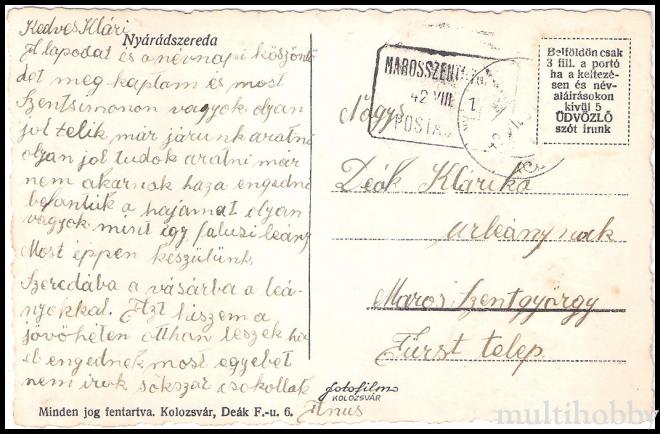 Kedves Klári
Nyárádszereda
A lapodat és a névnapi köszöntő
det meg kaptam és most
Szentsimonon vagyok olyan
jol telik már járunk aratni
olyan jol tudok aratni már
nem akarnak haza engedni
befontuk a hajamat olyan
vagyok mint így falusi leány
Most éppen készülünk
Szeredába a vásárba a leá-
nyokkal. Azt hiszem a
jövőhéten otthan leszek ha
el engednek most egyebet
nem irok sokszor csokollak
Anus
Minden jog fentartva. Kolozsvár, Deák F.-u. 6.
fotofilm
KOLOZSVÁR
MAROSSZENT
42 VIII
POSTA
Belföldön csak
3 fill. a portó
ha a keltezé-
sen és név-
aláirásokon
kivül 5
ÜDVÖZLŐ
szót irunk
Nagys
Deák Klárika
urleánynak
Maros Szentgyörgy
Fürst telep
multihobby